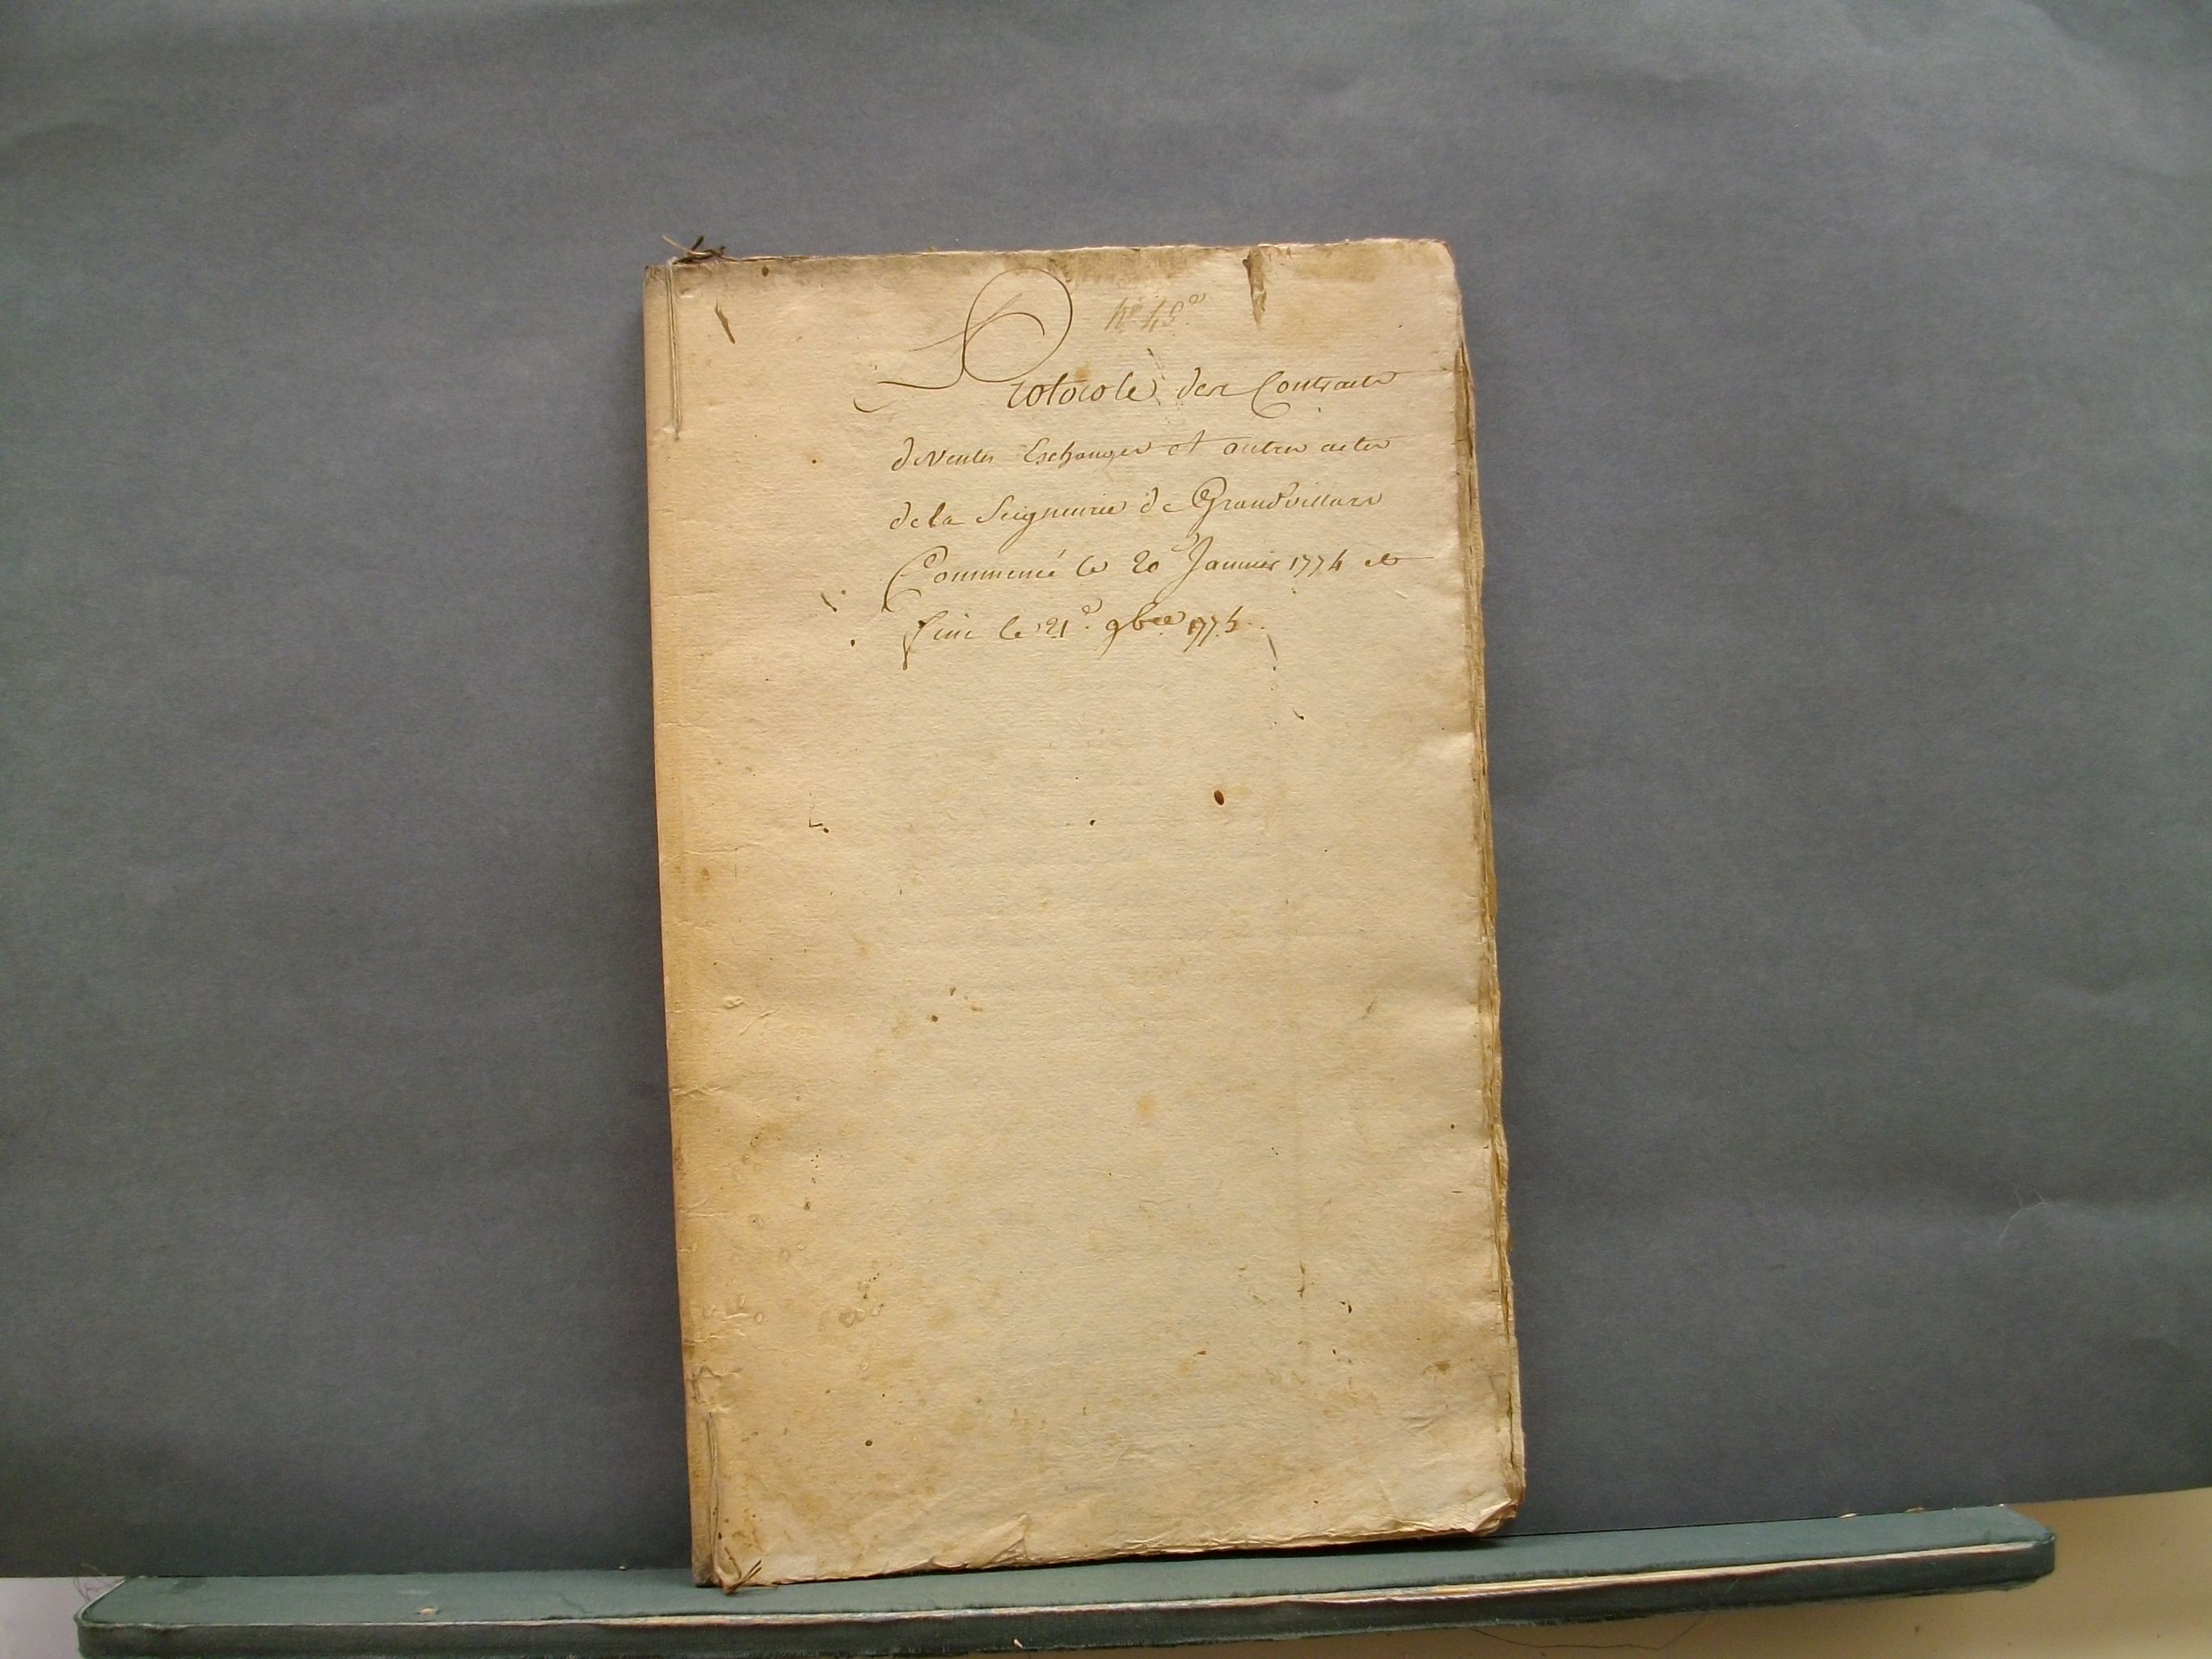 N° 45.e
Protocole des Contracts
de Ventes Eschanges et autres actes
de la Seigneurie de Grandvillars
Commencé le 20 Janvier 1774 et
finie le 21e. 9bre 1774.